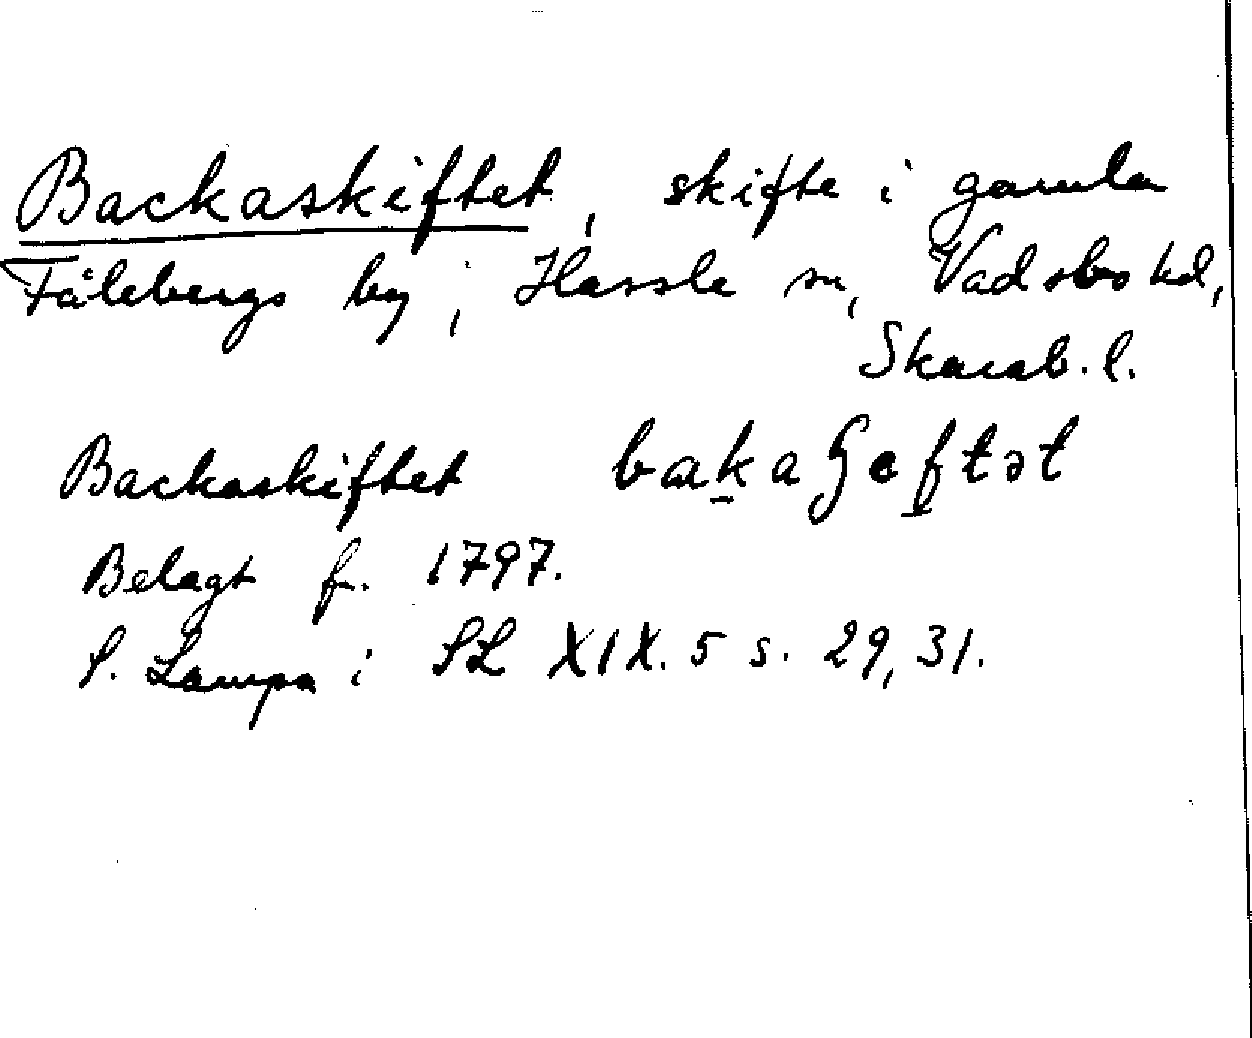 Backaskiftet, skifte i gamla
Fålebergs by, i Hassle sn, Vadsbo hd,
Skarab. l.
Backaskiftet
Belagt fr. 1797.
S. Lampa i SL XIX. 5 s. 29, 31.